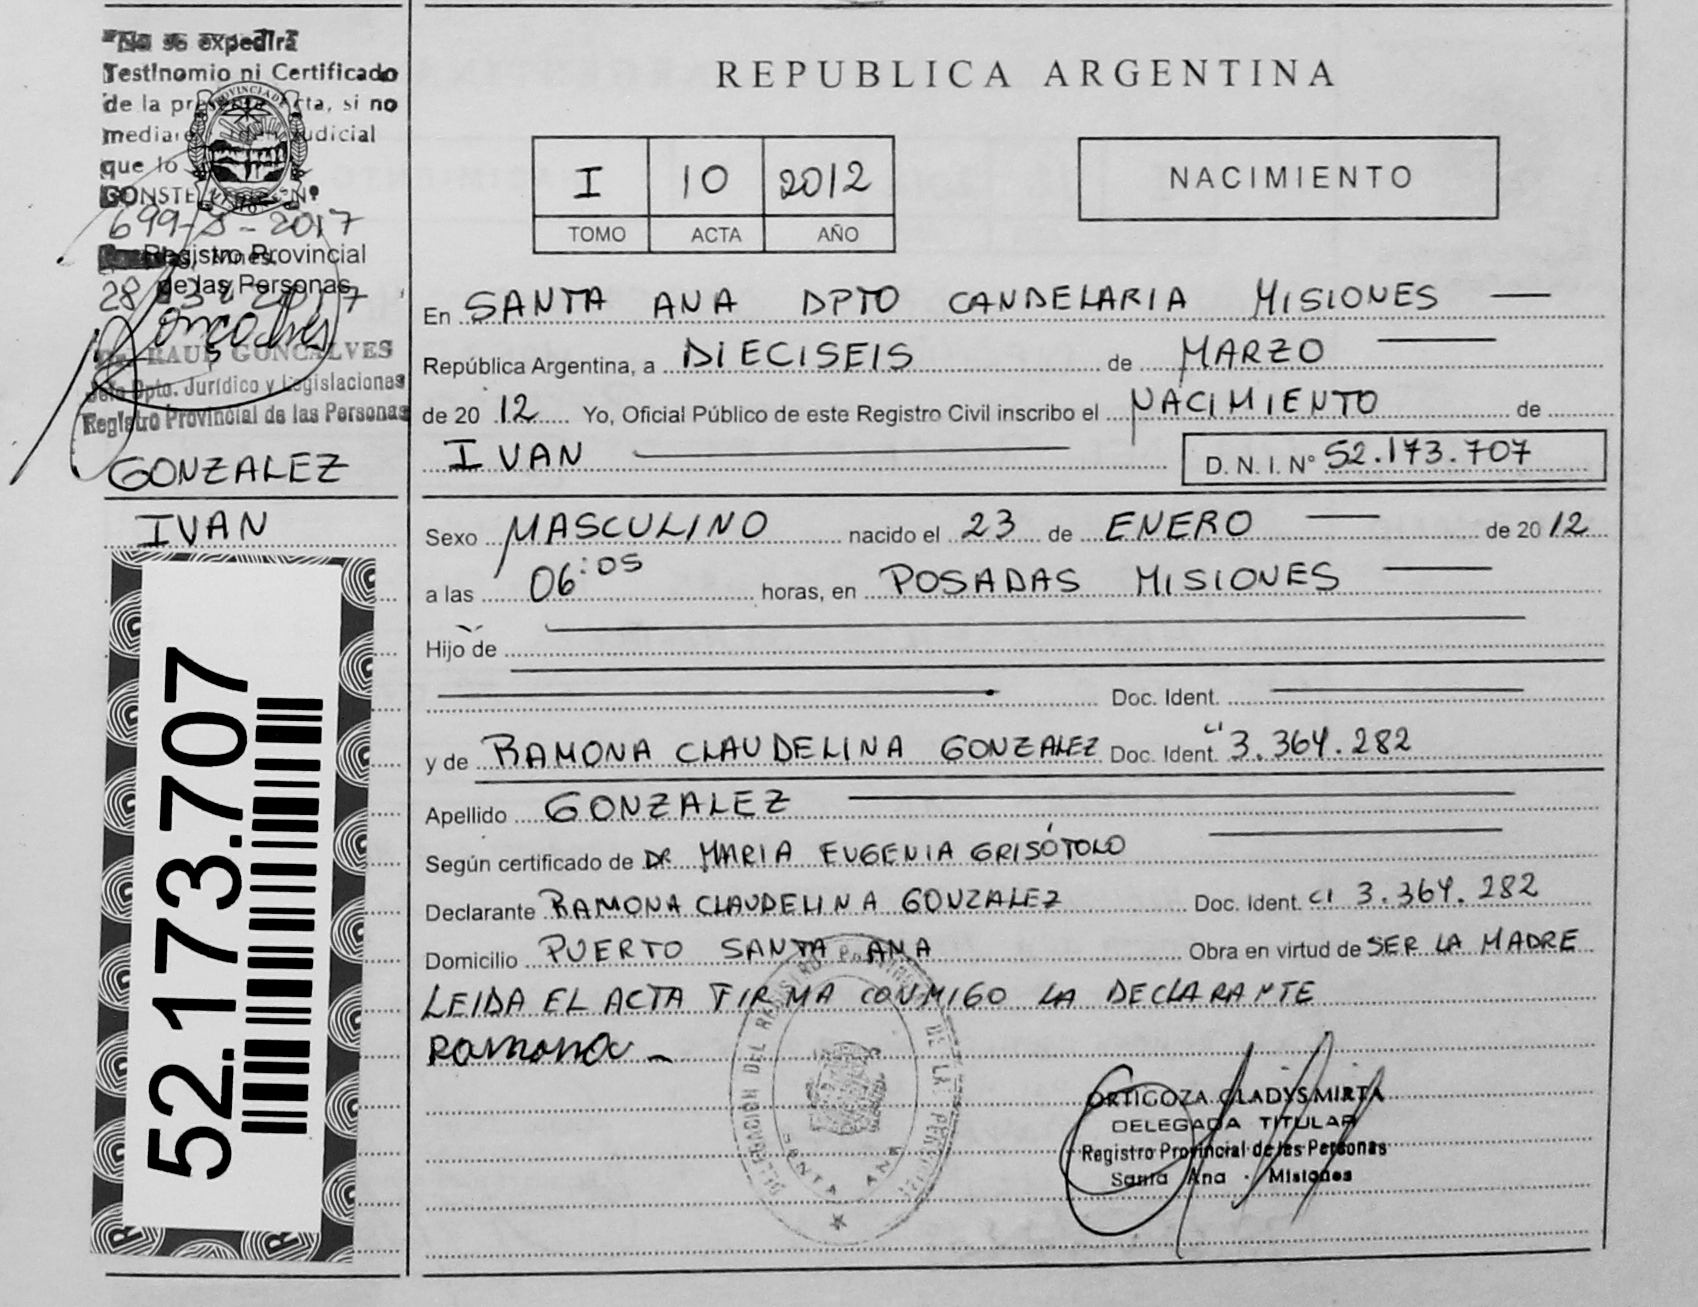 "No se expedirá
Testimonio ni Certificado
de la presente Acta, si no
mediare Orden Judicial
que lo
CONSTE Nº
699-S-2017
Registro Provincial
de las Personas
28 2017
Dr. RAUL GONCALVES
Jefe Dpto. Jurídico y Legislaciones
Registro Provincial de las Personas
GONZALEZ
IVAN
52.173.707
REPUBLICA ARGENTINA
I 10 2012
TOMO ACTA AÑO
NACIMIENTO
En SANTA ANA DPTO CANDELARIA MISIONES
República Argentina, a DIECISEIS de MARZO
de 20 12 Yo, Oficial Público de este Registro Civil inscribo el NACIMIENTO de
IVAN D. N. I. Nº 52.173.707
Sexo MASCULINO nacido el 23 de ENERO de 20 12
a las 06:05 horas, en POSADAS MISIONES
Hijo de
Doc. Ident.
y de RAMONA CLAUDELINA GONZALEZ Doc. Ident. CI 3.364.282
Apellido GONZALEZ
Según certificado de Dr. MARIA EUGENIA GRISÓTOLO
Declarante RAMONA CLAUDELINA GONZALEZ Doc. Ident. CI 3.364.282
Domicilio PUERTO SANTA ANA Obra en virtud de SER LA MADRE
LEIDA EL ACTA FIRMA CONMIGO LA DECLARANTE
Ramona
DELEGACIÓN DEL REGISTRO PROVINCIAL DE LAS PERSONAS
SANTA ANA
ORTIGOZA GLADYS MIRTA
DELEGADA TITULAR
Registro Provincial de las Personas
Santa Ana - Misiones